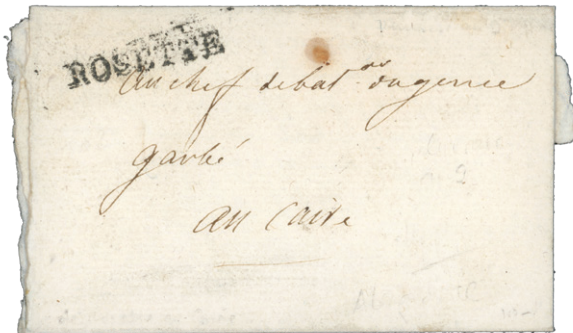 ROSETTE
au chef de bat.on du genie
garbé
au Caire